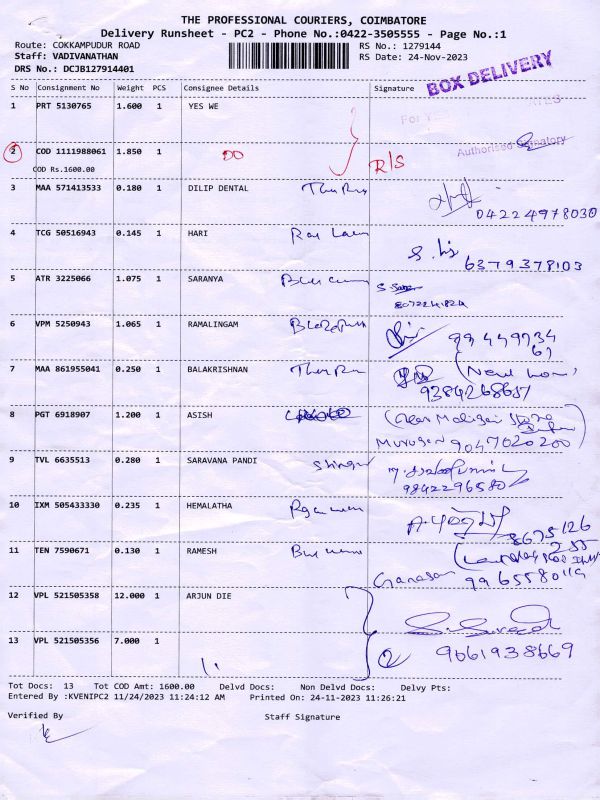 THE PROFESSIONAL COURIERS, COIMBATORE
Delivery Runsheet - PC2 - Phone No.:0422-3505555 - Page No.:1
Route: COKKAMPUDUR ROAD
RS No.: 1279144
Staff: VADIVANATHAN
RS Date: 24-Nov-2023
DRS No.: DCJB127914401
BOX DELIVERY
S No Consignment No Weight PCS Consignee Details Signature
1 PRT 5130765 1.600 1 YES WE
Authorised Signatory
2 COD 1111988061 1.850 1 DO R/S
COD Rs.1600.00
3 MAA 571413533 0.180 1 DILIP DENTAL
04224978030
4 TCG 50516943 0.145 1 HARI
6379378103
5 ATR 3225066 1.075 1 SARANYA
6 VPM 5250943 1.065 1 RAMALINGAM
7 MAA 861955041 0.250 1 BALAKRISHNAN
8 PGT 6918907 1.200 1 ASISH
Murugan 9047020200
9 TVL 6635513 0.280 1 SARAVANA PANDI
9842296580
10 IXM 505433330 0.235 1 HEMALATHA
11 TEN 7590671 0.130 1 RAMESH
12 VPL 521505358 12.000 1 ARJUN DIE
13 VPL 521505356 7.000 1
9061938669
Tot Docs: 13 Tot COD Amt: 1600.00 Delvd Docs: Non Delvd Docs: Delvy Pts:
Entered By :KVENIPC2 11/24/2023 11:24:12 AM Printed On: 24-11-2023 11:26:21
Verified By Staff Signature